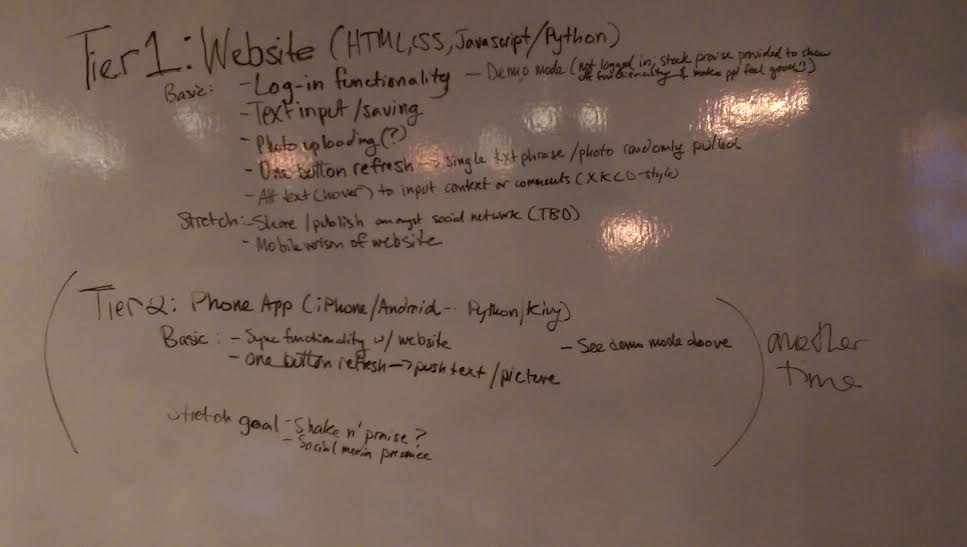 Tier 1: Website (HTML, CSS, Javascript/Python)
Basic: - Log-in functionality - Demo mode (not logged in; stock praise provided to show off functionality & make ppl feel good!!)
- Text input/saving
- Photo uploading (?)
- One button refresh → single txt phrase/photo randomly pulled
- Alt text (hover) to input context or comments (XKCD-style)
Stretch: - Share/publish amongst social network (TBD)
- Mobile version of website
(Tier 2: Phone App (iPhone/Android - Python/Kivy)
Basic: - Sync functionality w/ website - See demo mode above
- One button refresh → push text/picture
Stretch goal - Shake n' praise?
- Social media presence
)
another
time